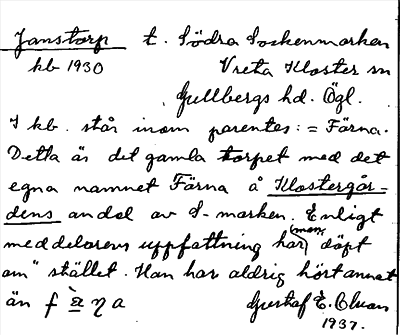 Janstorp t. Södra Sockenmarken
kb 1930 Vreta Kloster sn
Gullbergs hd. Ögl.
I kb. står inom parentes: = Färna.
Detta är det gamla torpet med det
egna namnet Färna å Klostergår-
dens andel av S-marken. Enligt
meddelarens uppfattning har (man) döpt
om" stället. Han har aldrig hört annat
än f
Gustaf E. Cluan
1937.